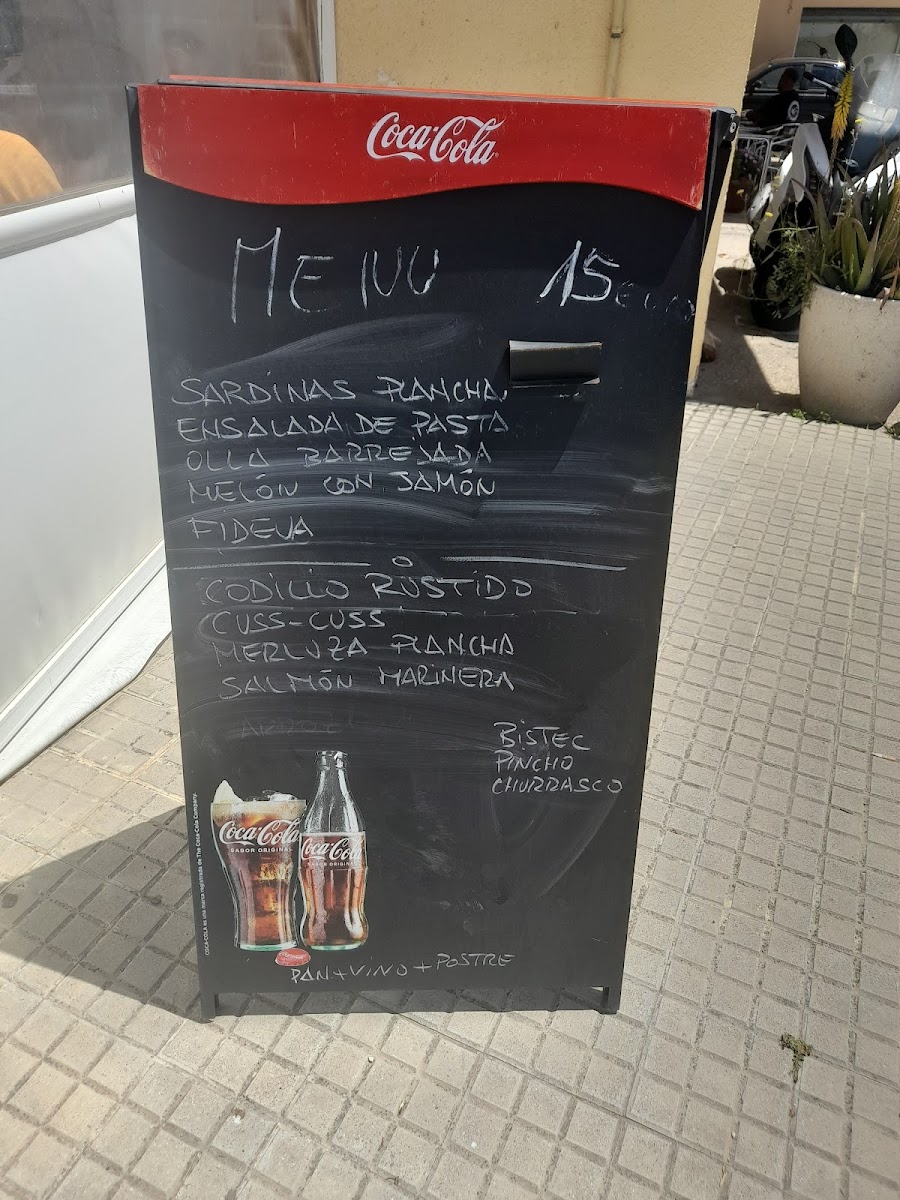 Coca-Cola
MENU 15 EURO
SARDINAS PLANCHA
ENSALADA DE PASTA
OLLA BARREJADA
MELÓN CON JAMÓN
FIDEUA
O
CODILLO RUSTIDO
CUSS-CUSS
MERLUZA PLANCHA
SALMÓN MARINERA
BISTEC
PINCHO
CHURRASCO
Coca-Cola
SABOR ORIGINAL
Coca-Cola
SABOR ORIGINAL
COCA-COLA es una marca registrada de The Coca-Cola Company.
PAN+VINO+POSTRE